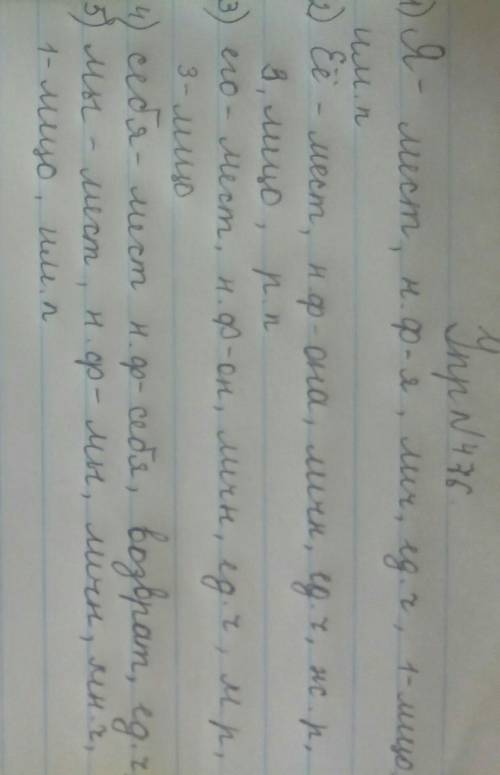 Упр N 476.
1) Я - мест, н.ф-я, лич, ед.ч, 1-лицо,
им.п
2) Её - мест, н.ф-она, личн, ед.ч, ж.р,
лицо, р.п
3) его - мест, н.ф-он, личн, ед.ч, м.р,
3-лицо
4) себя - мест н.ф-себя, возврат, ед.ч,
5) мы - мест, н.ф-мы, личн, мн.ч,
1-лицо, им.п